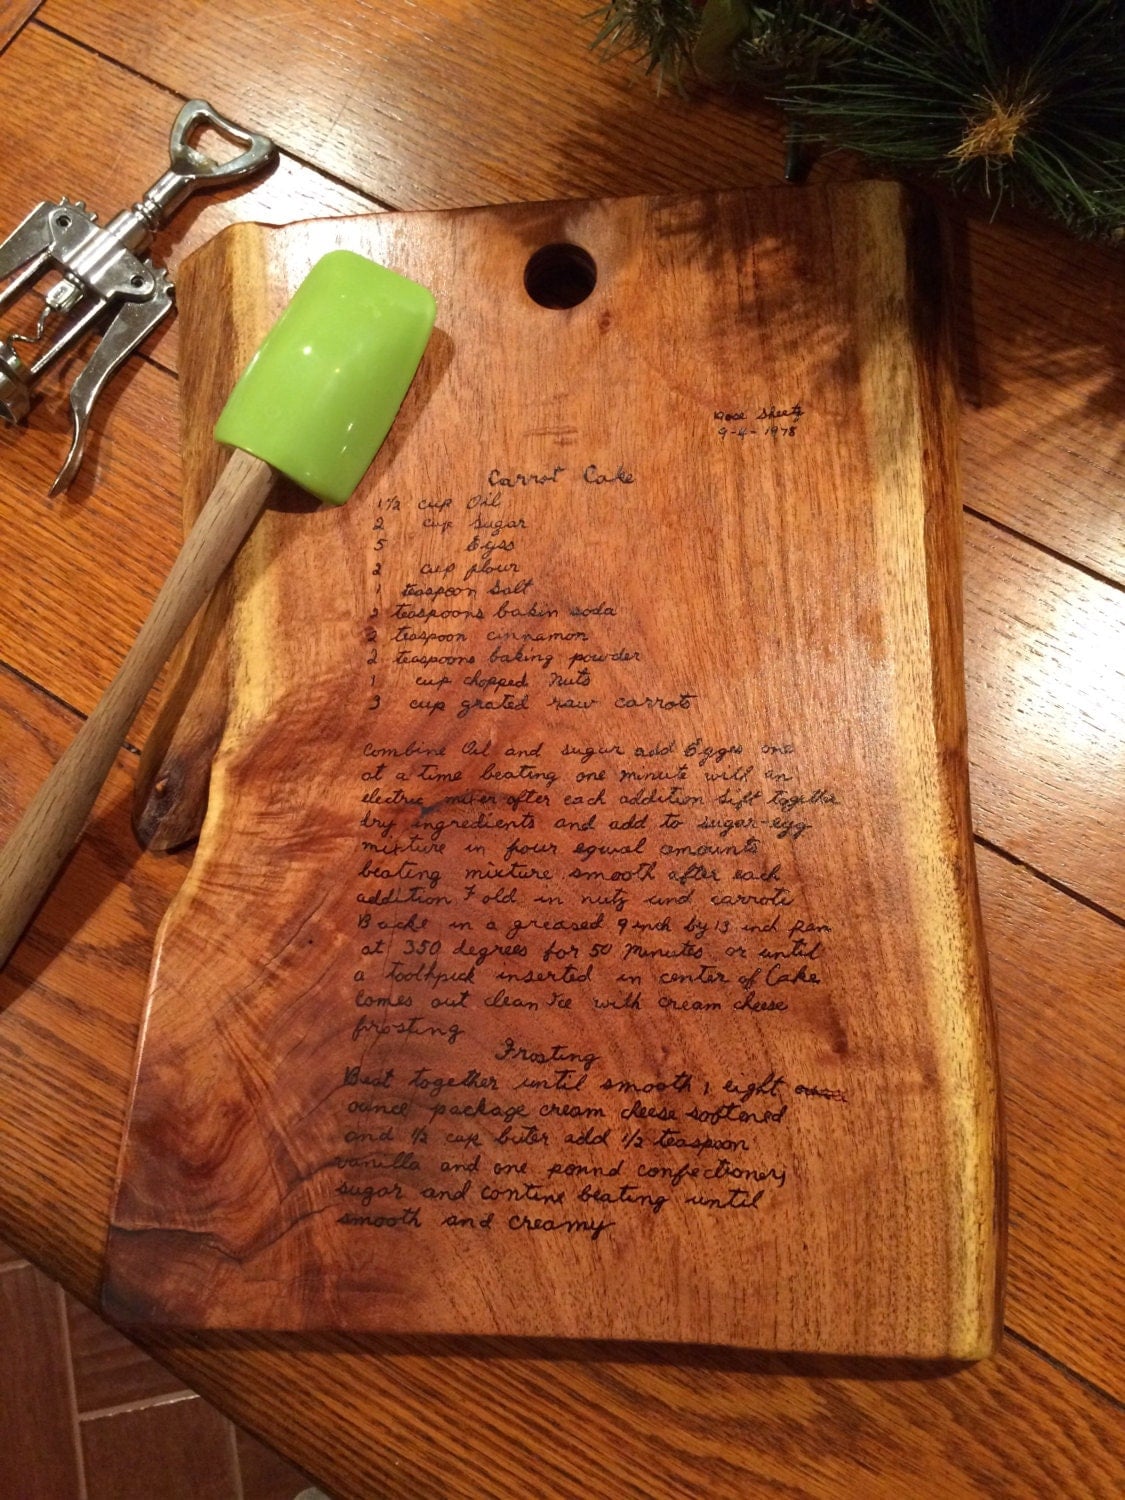 Rose Sheetz
9-4-1978
Carrot Cake
1 1/2 cup Oil
2 cup sugar
5 Eggs
2 cup flour
1 teaspoon salt
2 teaspoons bakin soda
2 teaspoon cinnamon
2 teaspoons baking powder
1 cup chopped Nuts
3 cup grated raw carrots
Combine Oil and sugar add Egges one
at a time beating one minute with an
electric mixer after each addition Sift togethe
dry ingredients and add to sugar-egg
mixture in four equal amounts
beating mixture smooth after each
addition Fold in nuts and carrots
Backe in a greased 9 inch by 13 inch pan
at 350 degrees for 50 Minutes or until
a toothpick inserted in center of Cake
Comes out clean Ice with cream cheese
frosting
Frosting
Beat together until smooth 1 eight
ounce package cream cheese softened
and 1/2 cup buter add 1/2 teaspoon
vanilla and one pound confectioners
sugar and contine beating until
smooth and creamy